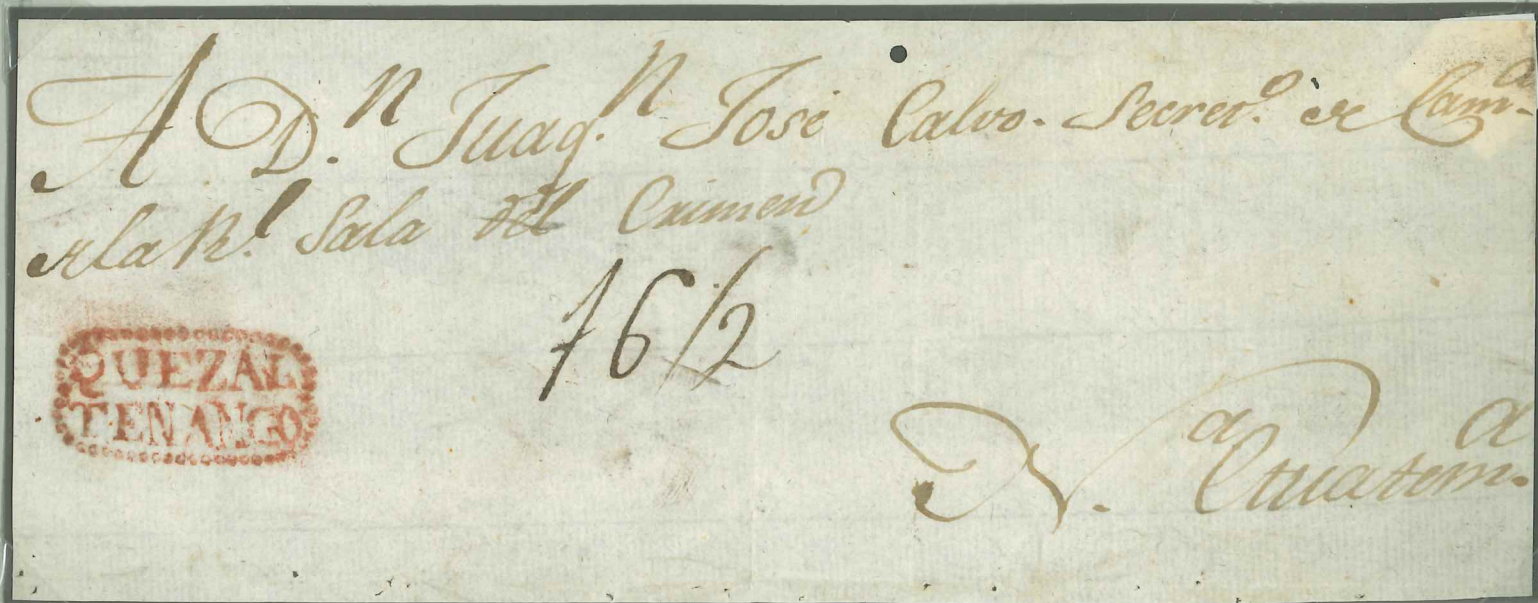 A D.n Juaq.n José Calvo. Secret.o de Cam.a
de la R.l Sala del Crimen
QUEZAL
TENANGO
16/2
N.a Guatem.a